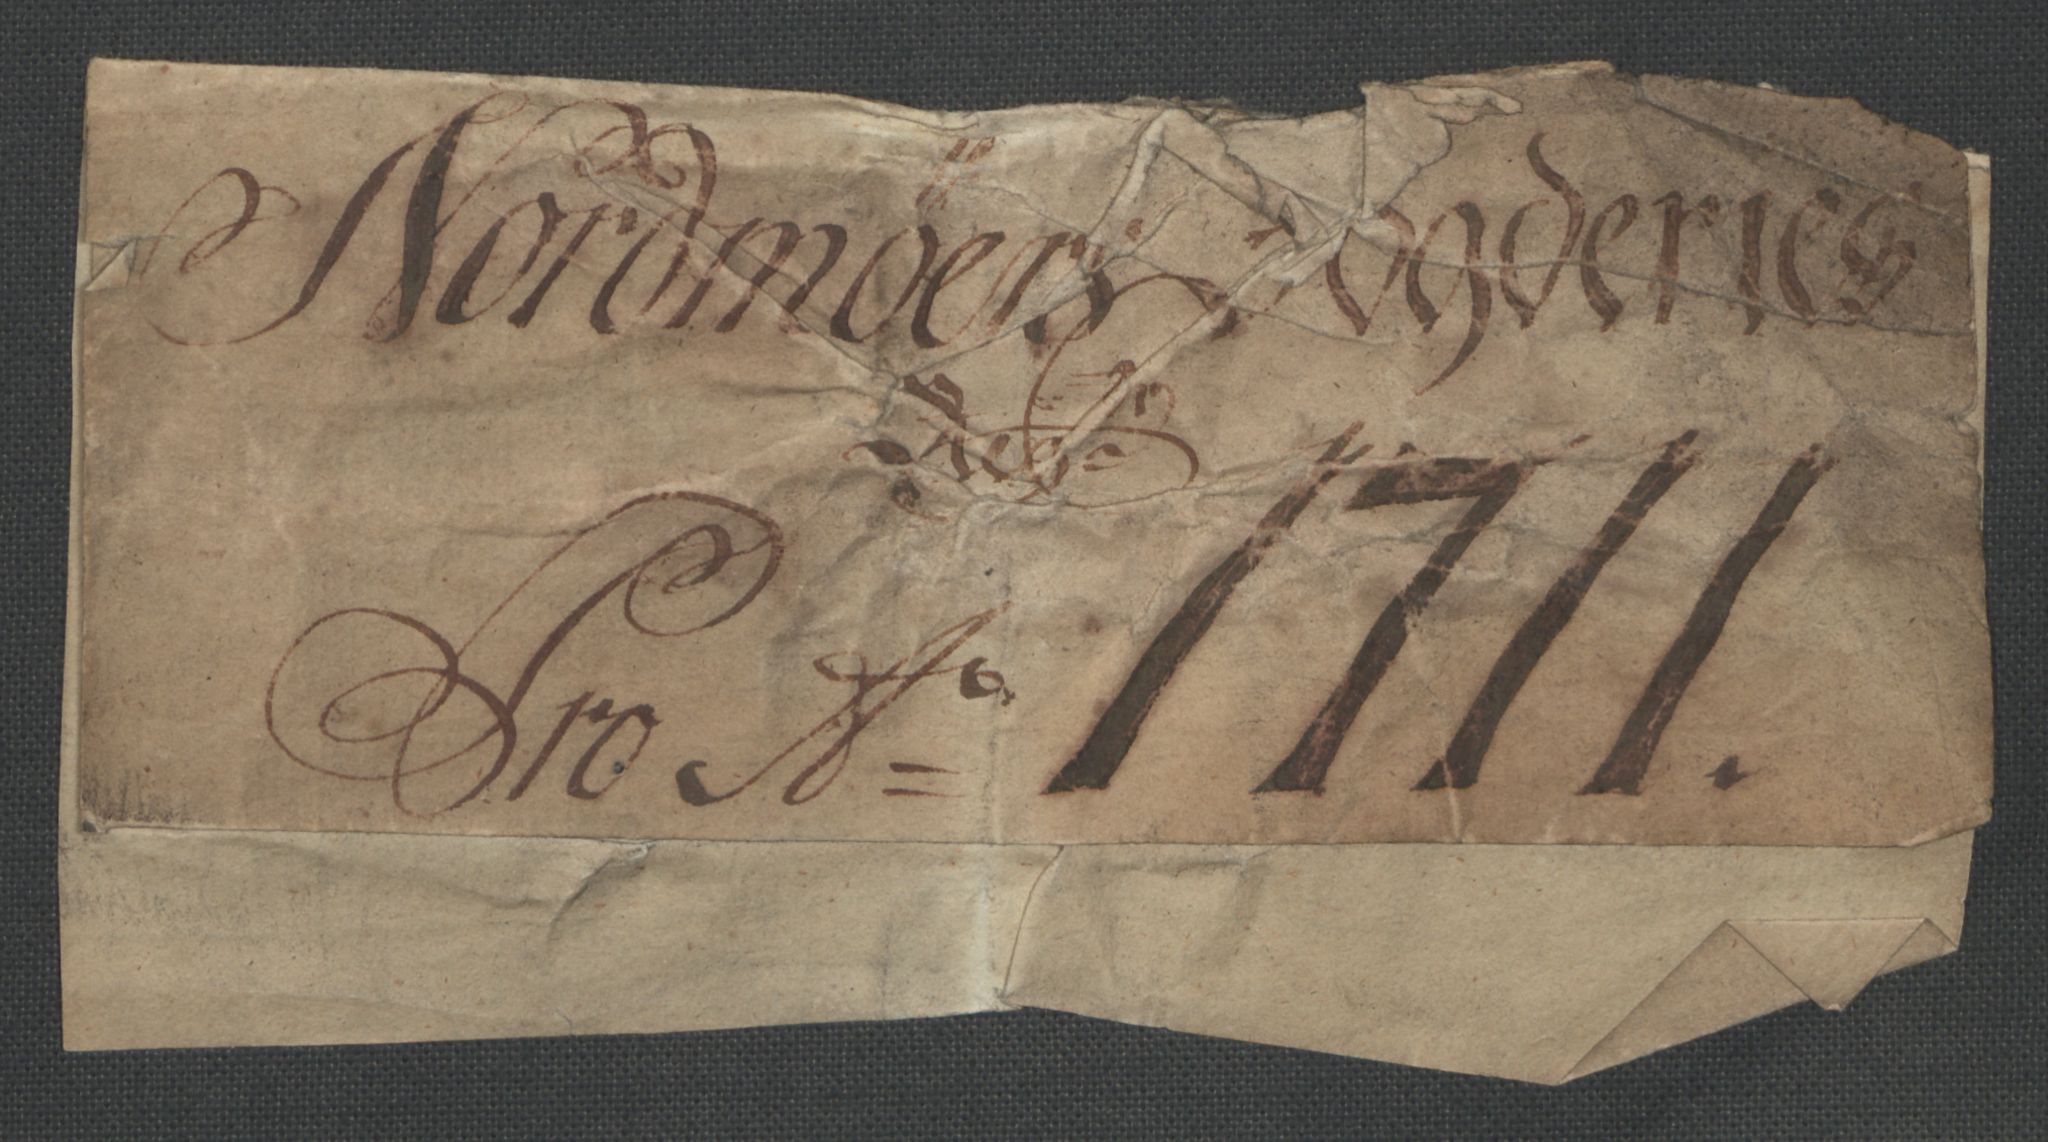 Nordmöers Fogderies
Regn
Pro Ao 1711.